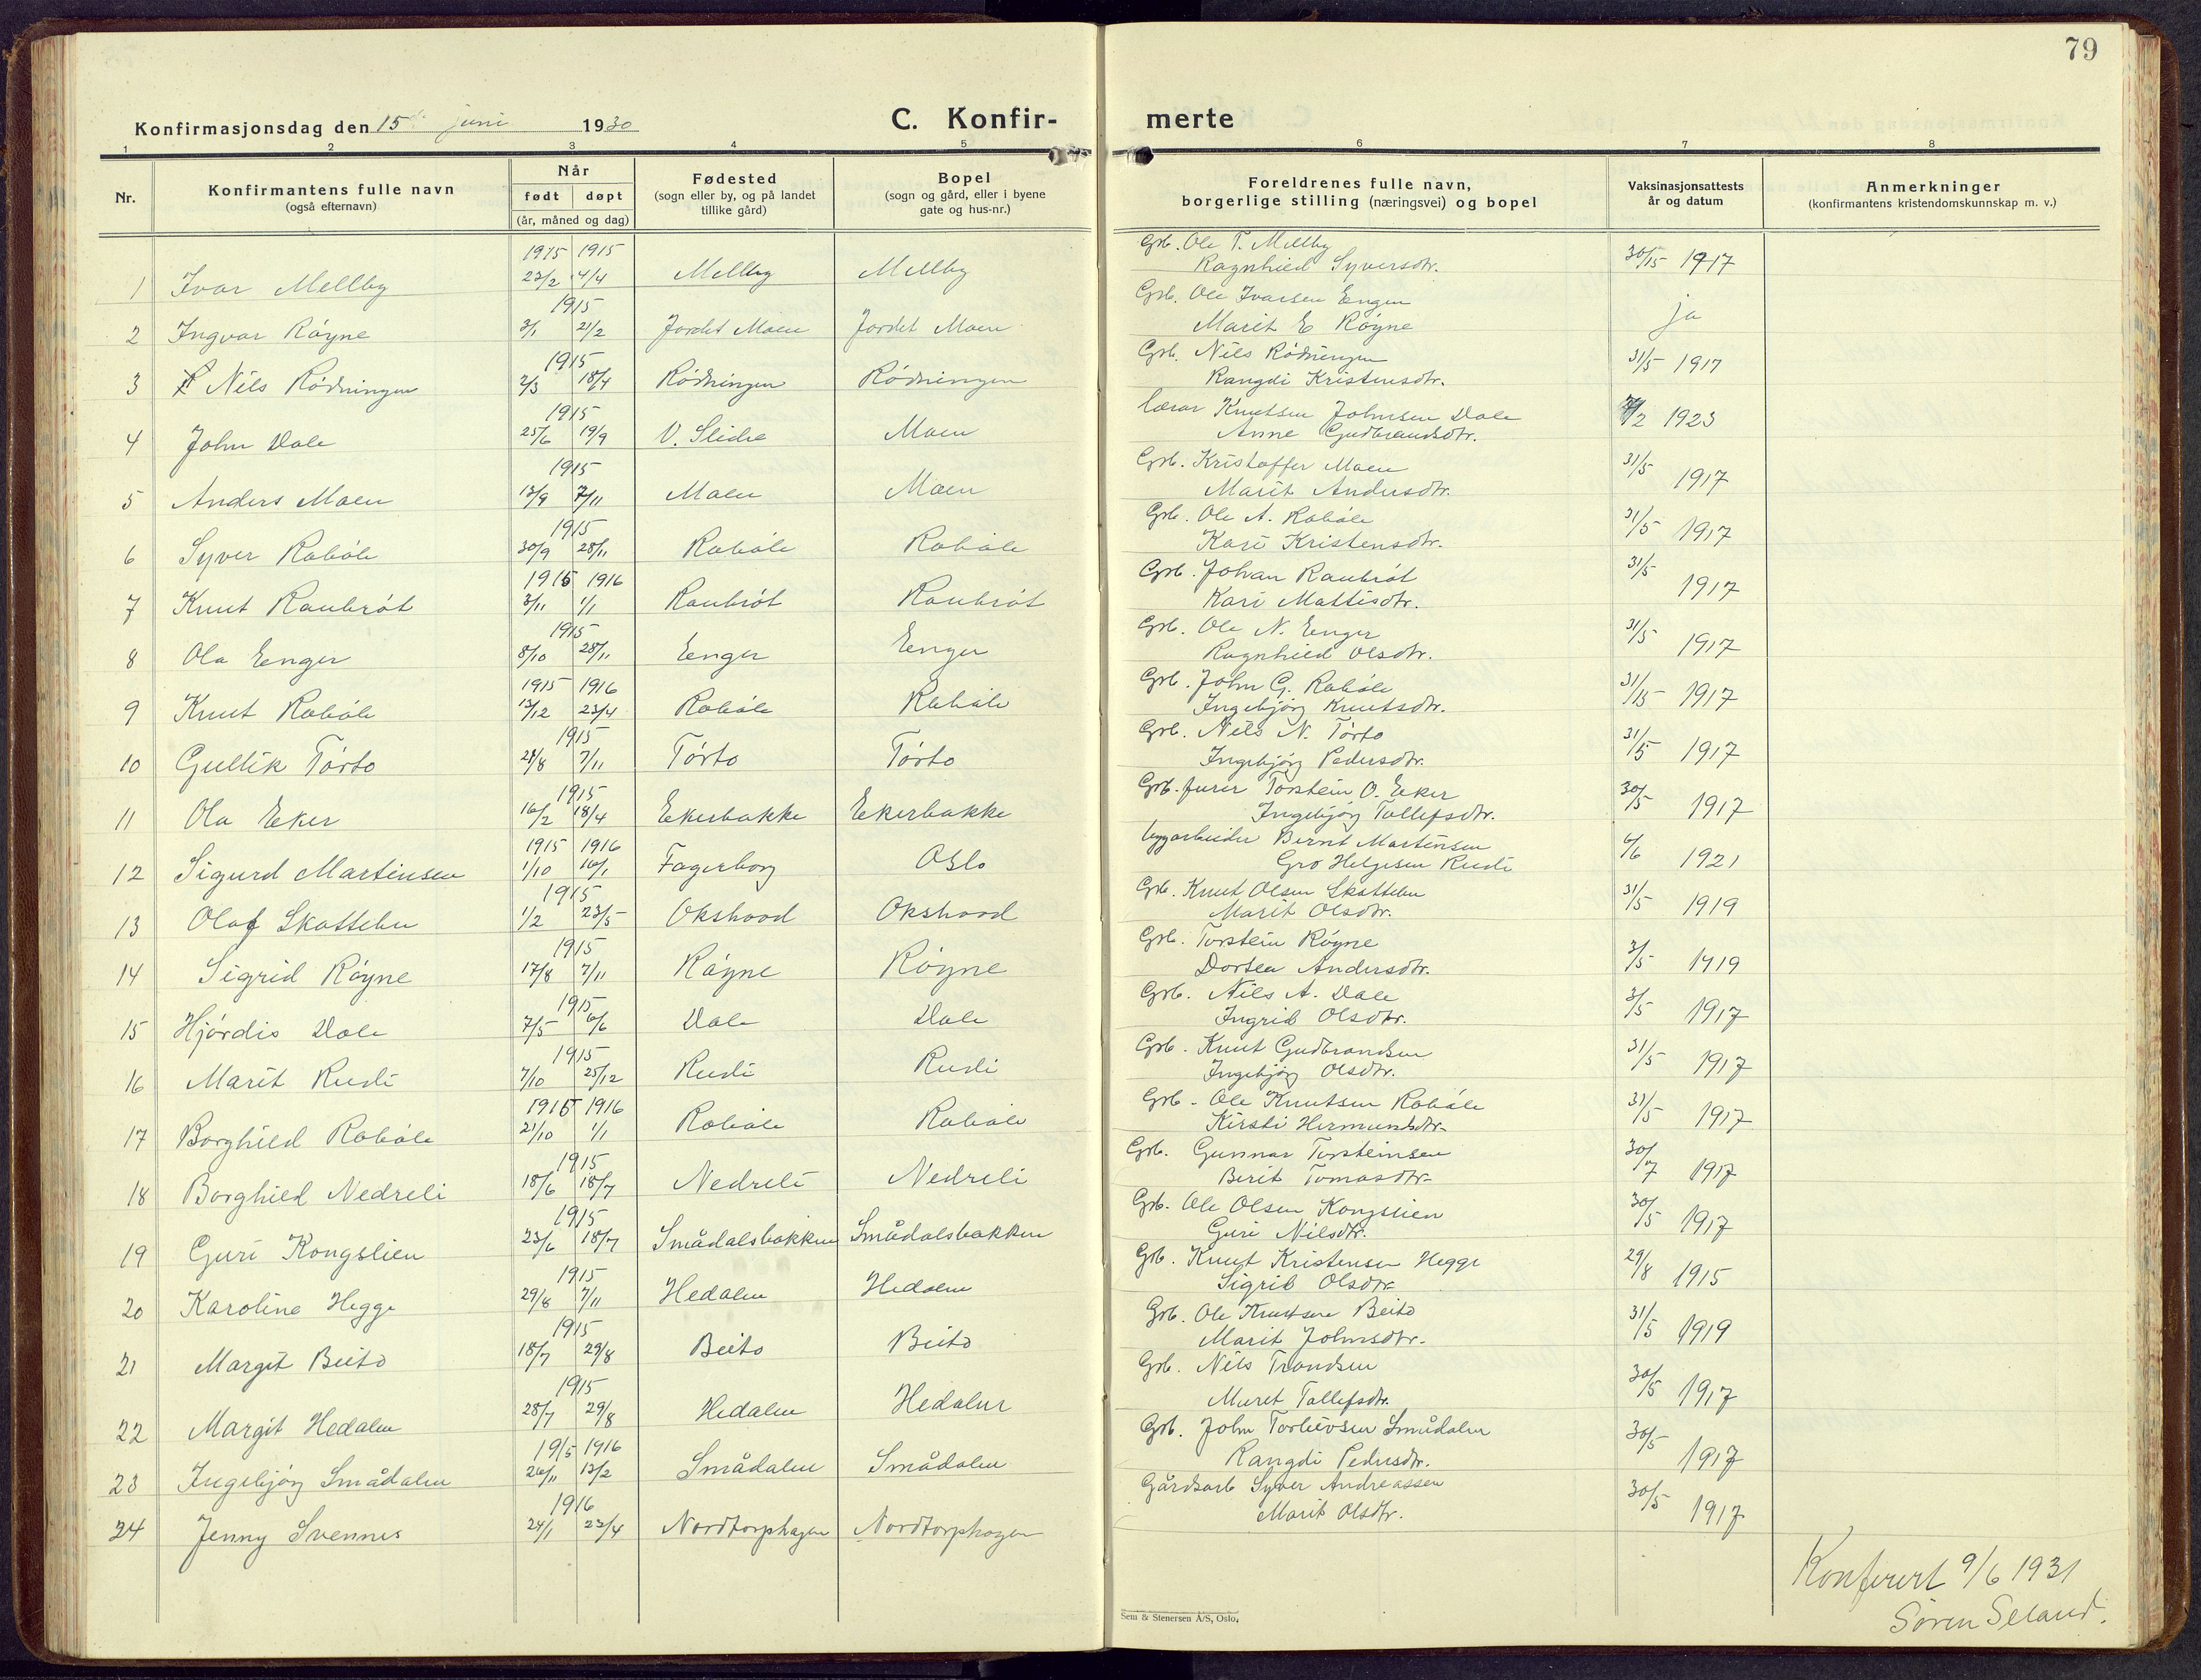 79
Konfirmasjonsdag den 15 juni 1930
C. Konfirmerte
1 2 3 4 5 6 7 8
Nr. | Konfirmantens fulle navn (også efternavn) | Når født | døpt (år, måned og dag) | Fødested (sogn eller by, og på landet tillike gård) | Bopel (sogn og gård, eller i byene gate og hus-nr.) | Foreldrenes fulle navn, borgerlige stilling (næringsvei) og bopel | Vaksinasjonsattests år og datum | Anmerkninger (konfirmantens kristendomskunnskap m. v.)
1 Ivar Mellby 1915 23/2 1915 4/4 Mellby Mellby Grb. Ole T. Mellby Ragnhild Syversdtr. 30/5 1917
2 Ingvar Röyne 1915 3/1 21/2 Jordet Moen Jordet Moen Grb. Ole Ivarsen Engen Marit E Röyne ja
3 Nils Rödningen 1915 2/3 18/4 Rödningen Rödningen Grb. Nils Rödningen Rangdi Kristensdtr. 31/5 1917
4 John Dale 1915 25/6 19/9 V. Slidre Moen lærar Knutsen Johnsen Dale Anne Gudbrandsdtr. /2 1923
5 Anders Moen 1915 13/9 7/11 Moen Moen Grb. Kristoffer Moen Marit Andersdtr. 31/5 1917
6 Syver Roböle 1915 30/9 28/11 Roböle Roböle Grb. Ole A. Roböle Kari Kristensdtr. 31/5 1917
7 Knut Raubröt 1915 3/11 1916 1/1 Raubröt Raubröt Grb. Johan Raubröt Kari Mattisdtr. 31/5 1917
8 Ola Enger 1915 8/10 28/11 Enger Enger Grb. Ole N. Enger Ragnhild Olsdtr. 31/5 1917
9 Knut Roböle 1915 13/12 1916 23/4 Roböle Roböle Grb. John G. Roböle Ingebjörg Knutsdtr. 31/5 1917
10 Gullik Törto 1915 28/8 7/11 Törto Törto Grb. Nils N. Törto Ingebjörg Pedersdtr. 31/5 1917
11 Ola Eker 1915 16/2 18/4 Ekerbakke Ekerbakke Grb. furer Torstein O. Eker Ingebjörg Tollefsdtr. 30/5 1917
12 Sigurd Martinsen 1915 1/10 1916 16/1 Fagerborg Oslo byggarbeider Bernt Martinsen Gro Helgesen Rudi 6/6 1921
13 Olaf Skattebu 1915 1/2 23/5 Okshovd Okshovd Grb. Knut Olsen Skattebu Marit Olsdtr. 31/5 1919
14 Sigrid Röyne 1915 17/8 7/11 Röyne Röyne Grb. Torstein Röyne Dortea Andersdtr. 3/5 1919
15 Hjördis Dale 1915 7/5 6/6 Dale Dale Grb. Nils A. Dale Ingrid Olsdtr. 3/5 1917
16 Marit Rudi 1915 7/10 25/12 Rudi Rudi Grb. Knut Gudbrandsen Ingebjörg Olsdtr. 31/5 1917
17 Borghild Roböle 1915 21/10 1916 1/1 Roböle Roböle Grb. Ole Knutsen Roböle Kirsti Hermundsdtr. 31/5 1917
18 Borghild Nedreli 1915 18/6 18/7 Nedreli Nedreli Grb. Gunnar Torsteinsen Berit Tomasdtr. 30/7 1917
19 Guri Kongslien 1915 23/6 18/7 Smådalsbakken Smådalsbakken Grb. Ole Olsen Kongslien Guri Nilsdtr. 30/5 1917
20 Karoline Hegge 1915 29/8 7/11 Hedalen Hedalen Grb. Knut Kristensen Hegge Sigrid Olsdtr. 29/8 1915
21 Margit Beito 1915 18/7 29/8 Beito Beito Grb. Ole Knutsen Beito Marit Johnsdtr. 31/5 1919
22 Margit Hedalen 1915 28/7 29/8 Hedalen Hedalen Grb. Nils Trondsen Muret Tollefsdtr. 30/5 1917
23 Ingebjörg Smådalen 1915 26/11 1916 13/2 Smådalen Smådalen Grb. John Torleivsen Smådalen Rangdi Pedersdtr. 30/5 1917
24 Jenny Svennes 1916 24/1 23/4 Nordtorphagen Nordtorphagen Gårdsarb Syver Andreassen Marit Olsdtr. 30/5 1917
Konferert 9/6 1931
Sören Seland.
Sem & Stenersen A/S, Oslo.